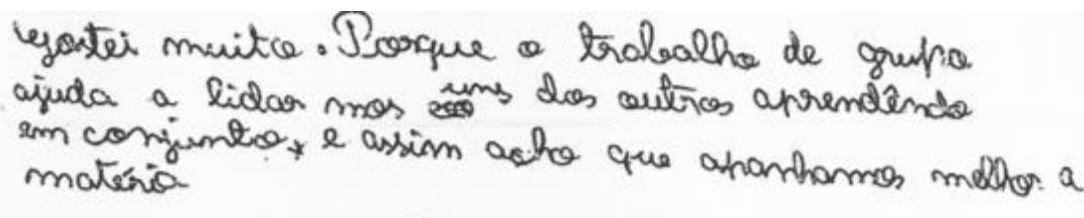 gostei muito. Porque o trabalho de grupo
ajuda a lidar mos uns dos outros aprendêndo
em conjunto, e assim acho que apanhamos melhor a
matéria